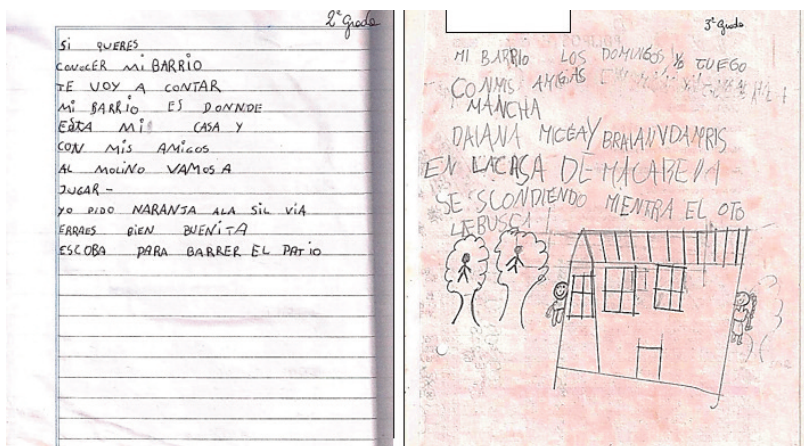 2º Grado
Si QUERES
CONOCER Mi BARRIO
TE VOY A CONTAR
Mi BARRIO ES DONNDE
ESTA Mi CASA Y
CON MIS AMIGOS
AL MOLINO VAMOS A
JUGAR -
YO PIDO NARANJA ALA SIL VIA
ERRAES BIEN BUENITA
ESCOBA PARA BARRER EL PATIO
3º Grado
MI BARRIO LOS DOMINGOS YO JUEGO
CONMIS AMIGAS
MANCHA
DAIANA MICAY BRAIAN
EN LACASA DE MACARENA
SE SCONDIENDO MIENTRA EL OTO
LEBUSCA